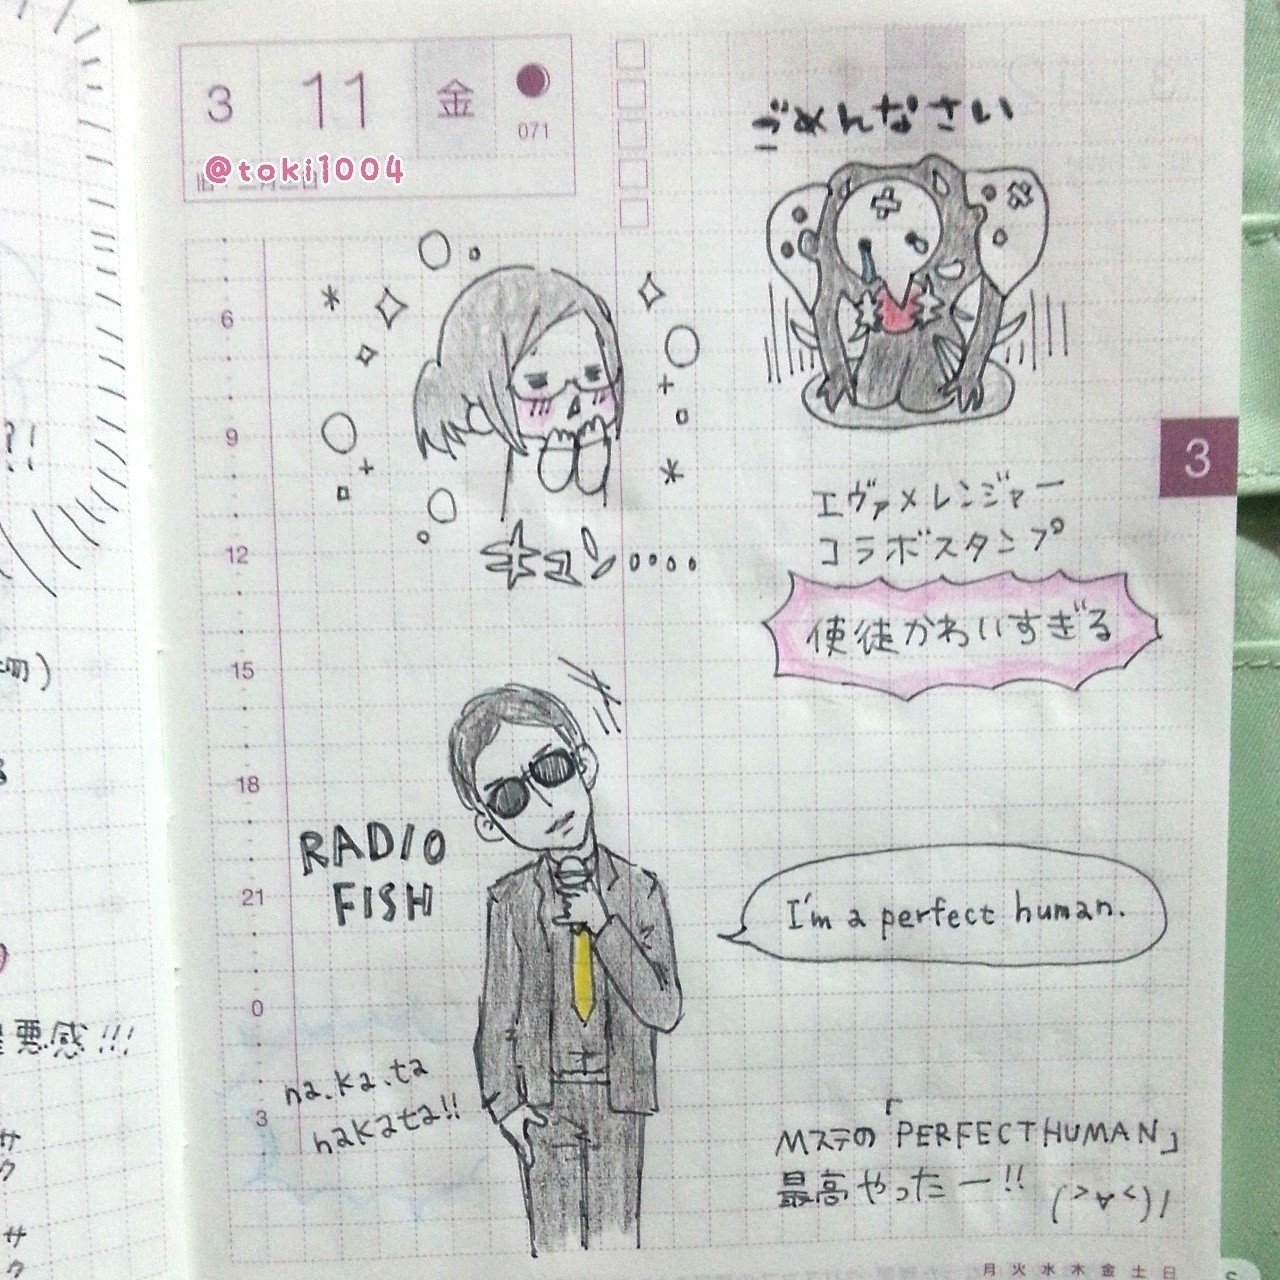 3 11 金
071
@toki1004
ごめんなさい
6
9
12
15
18
21
0
3
キュン....
エヴァメレンジャー
コラボスタンプ
使徒かわいすぎる
3
RADIO
FISH
I'm a perfect human.
na.ka.ta
nakata!!
Mステの「PERFECT HUMAN」
最高やったー!!
(>∀<)ノ
月 火 水 木 金 土 日
?!
悪感!!!
サ
ク
サ
ク